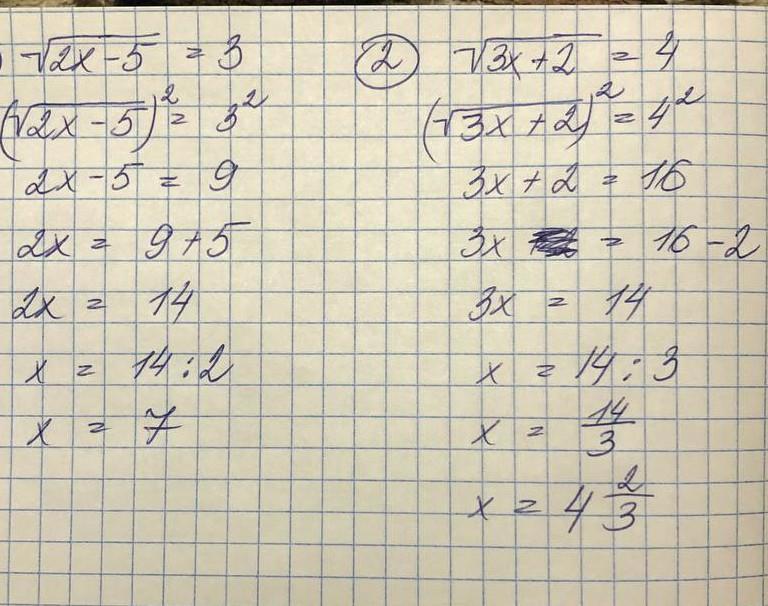 ) √(2x-5) = 3
(√(2x-5))² = 3²
2x-5 = 9
2x = 9+5
2x = 14
x = 14:2
x = 7
② √(3x+2) = 4
(√(3x+2))² = 4²
3x+2 = 16
3x = 16-2
3x = 14
x = 14:3
x = 14/3
x = 4 2/3